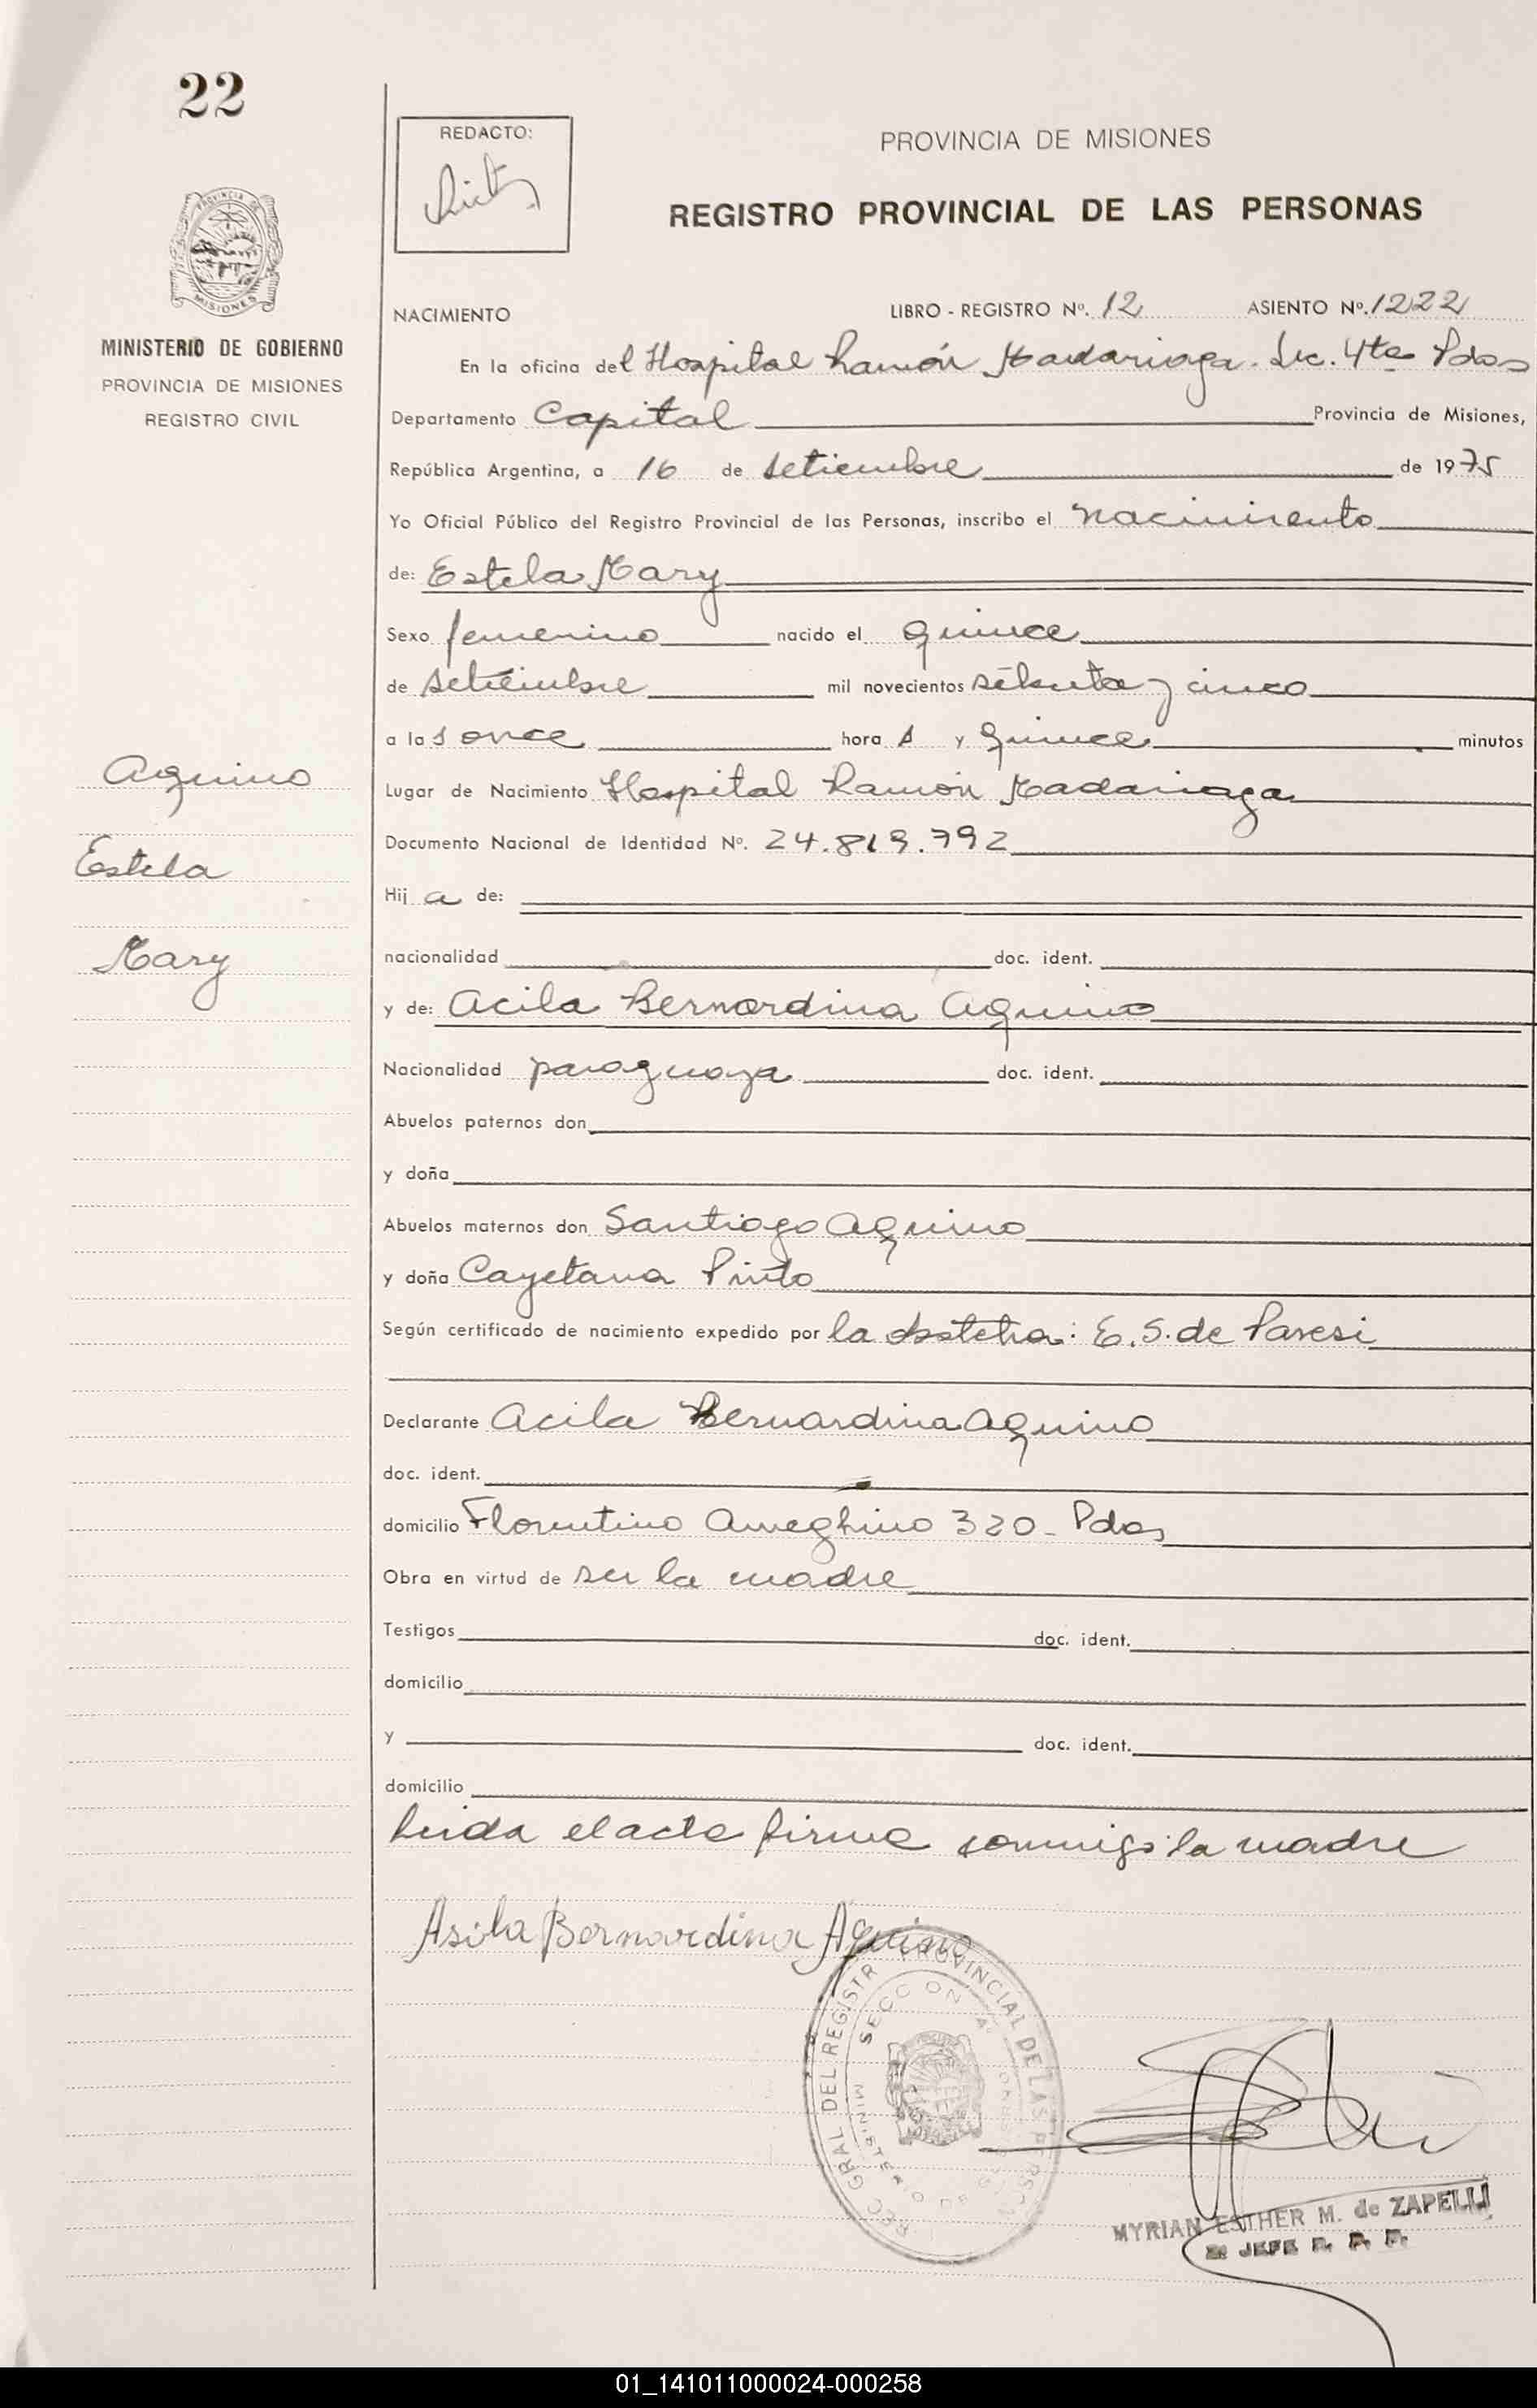 22
REDACTO:
PROVINCIA DE MISIONES
REGISTRO PROVINCIAL DE LAS PERSONAS
PROVINCIA DE
MISIONES
MINISTERIO DE GOBIERNO
PROVINCIA DE MISIONES
REGISTRO CIVIL
NACIMIENTO LIBRO - REGISTRO Nº. 12 ASIENTO Nº. 1222
En la oficina del Hospital Ramón Madariaga. Sec. 4ta Pdas
Departamento Capital Provincia de Misiones,
República Argentina, a 16 de setiembre de 1975
Yo Oficial Público del Registro Provincial de las Personas, inscribo el nacimiento
de: Estela Mary
Sexo femenino nacido el quince
de setiembre mil novecientos setenta y cinco
a las once hora s y quince minutos
Lugar de Nacimiento Hospital Ramón Madariaga
Documento Nacional de Identidad Nº. 24.819.792
Hij a de:
nacionalidad doc. ident.
y de: Acila Bernardina Aquino
Nacionalidad paraguaya doc. ident.
Abuelos paternos don
y doña
Abuelos maternos don Santiago Aquino
y doña Cayetana Pinto
Según certificado de nacimiento expedido por la obstetra: E. S. de Paresi
Declarante Acila Bernardina Aquino
doc. ident.
domicilio Florentino Ameghino 320 - Pdas
Obra en virtud de ser la madre
Testigos doc. ident.
domicilio
y doc. ident.
domicilio
Leida el acta firma conmigo la madre
Aquino
Estela
Mary
Asila Bernardina Aquino
GRAL DEL REGISTR PROVINCIAL DE LAS PERSON
SECCION 4ª
MINISTERIO DE GOBIERNO
MYRIAN ESTHER M. de ZAPELLI
JEFE R. P. P.
01_141011000024-000258